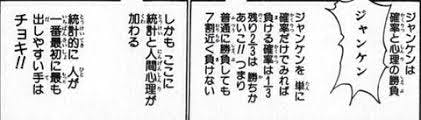 ジャンケンは
確率と心理の勝負
ジャンケン
ジャンケンを 単に
確率だけでみれば
負ける確率は1/3
残り2/3は 勝ちか
あいこ!! つまり
普通に勝負しても
7割近く負けない
しかも ここに
統計と人間心理が
加わる
統計的に 人が
一番最初に最も
出しやすい手は
チョキ!!